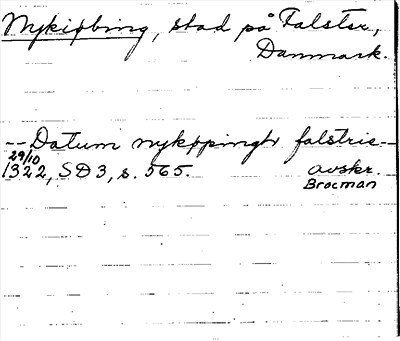 Nykiøbing, stad på Falster,
Danmark.
-- Datum nykøpingh falstrie --
29/10
1322, SD3, s. 565. avskr.
Brocman